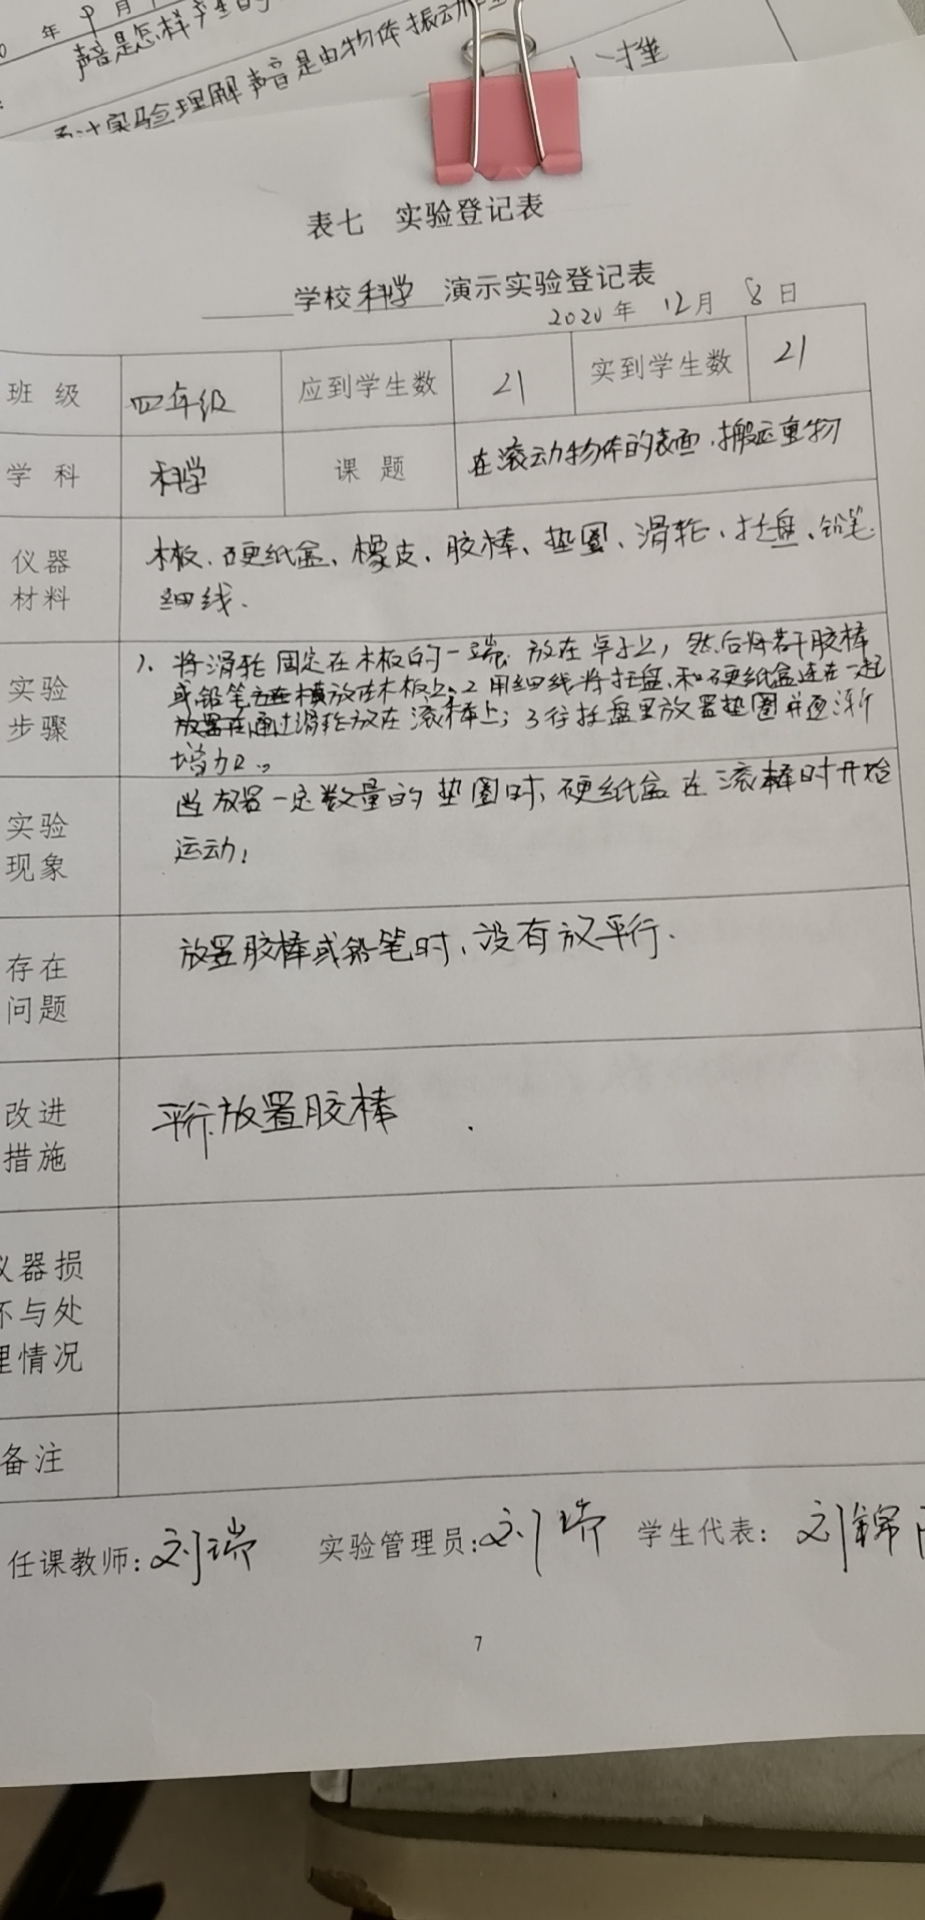 年 9 月
声音是怎样产生的
通过实验理解声音是由物体振动产生
表七 实验登记表
学校科学 演示实验登记表
2020 年 12月 8日
班 级 四年级 应到学生数 21 实到学生数 21
学 科 科学 课 题 在滚动物体的表面.搬运重物
仪器材料 木板、硬纸盒、橡皮、胶棒、垫圈、滑轮、托盘、铅笔.
细线.
实验步骤 1、将滑轮固定在木板的一端 放在桌子上，然后将若干胶棒
或铅笔横放在木板上；2 用细线将托盘和硬纸盒连在一起
通过滑轮放在滚棒上；3 往托盘里放置垫圈并逐渐
增加。
实验现象 当放置一定数量的垫圈时、硬纸盒在滚棒时开始
运动；
存在问题 放置胶棒或铅笔时、没有放平行.
改进措施 平行放置胶棒
仪器损
坏与处
理情况
备注
任课教师：刘瑞 实验管理员：刘瑞 学生代表： 刘锦
7